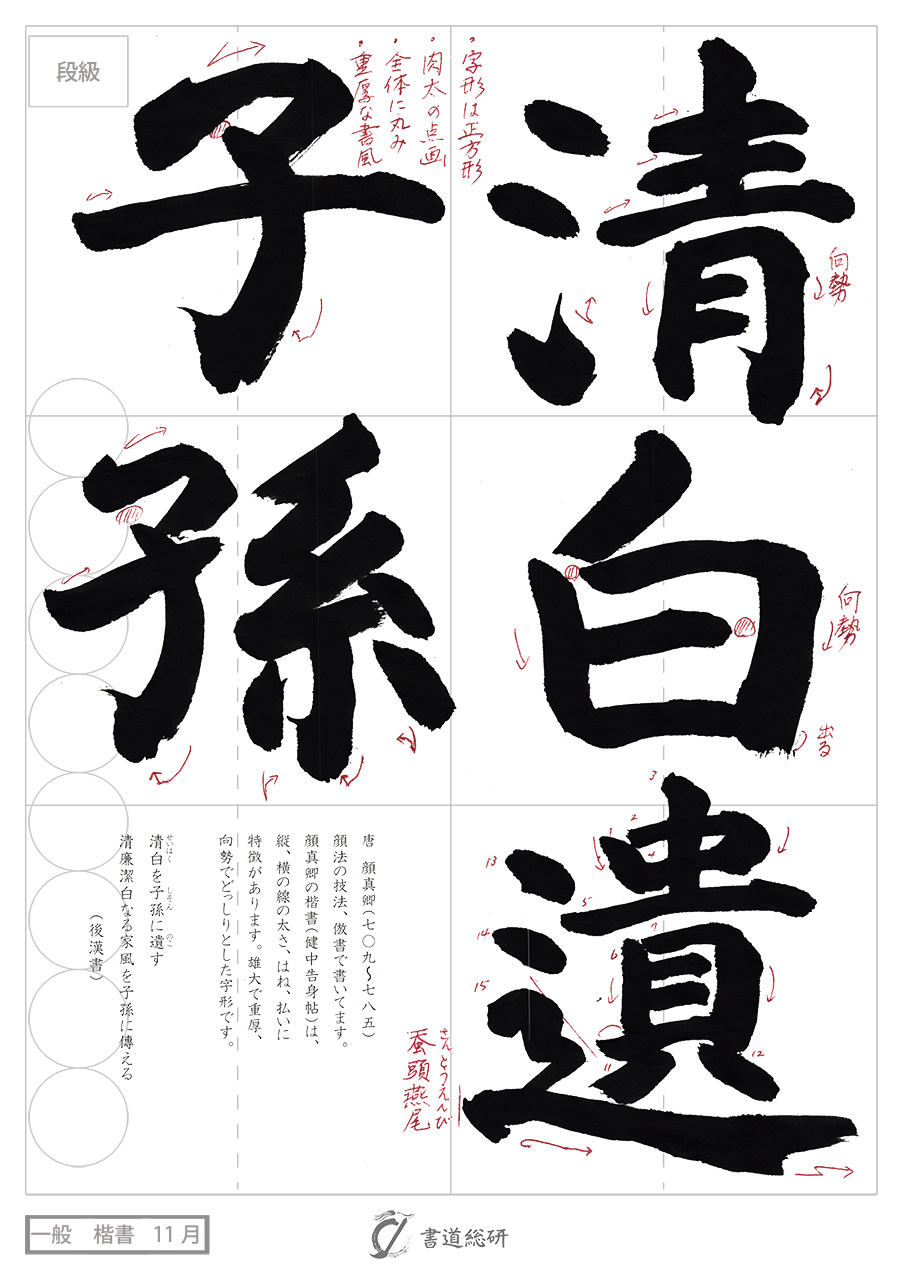 清
白
遺
子
孫
・字形は正方形
・肉太の点画
・全体に丸み
・重厚な書風
向勢
向勢
出る
1
2
3
4
5
6
7
11
12
13
14
15
さんとうえんび
蚕頭燕尾
唐　顔真卿(七〇九〜七八五)
顔法の技法、倣書で書いてます。
顔真卿の楷書(健中告身帖)は、
縦、横の線の太さ、はね、払いに
特徴があります。雄大で重厚、
向勢でどっしりとした字形です。
せいはく　しそん　のこ
清白を子孫に遺す
清廉潔白なる家風を子孫に傳える
(後漢書)
段級
一般　楷書　11月
書道総研